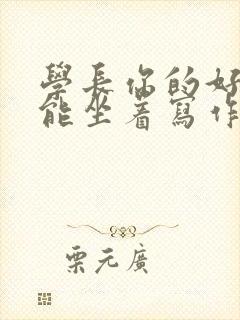 學長你的好
能坐着寫作
栗元廣